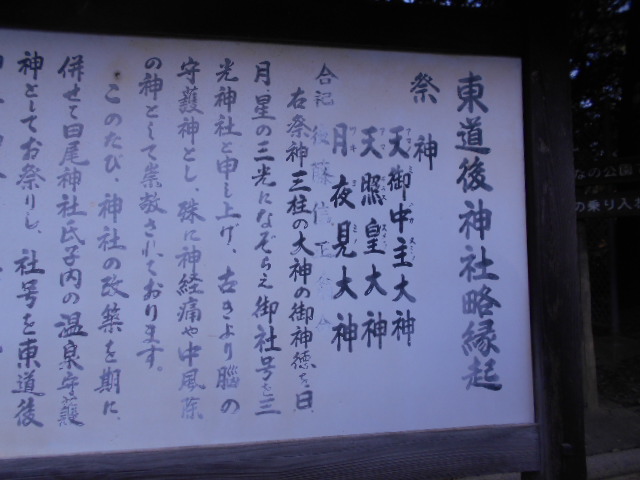 東道後神社略縁起
祭神
天御中主大神
天照皇大神
月夜見大神
合記 後藤
右祭神三柱の大神の御神徳を日
月、星の三光になぞらえ御社号を三
光神社と申し上げ、古きより脳の
守護神とし、殊に神経痛や中風除
の神として崇敬されております。
このたび、神社の改築を期に、
併せて田尾神社氏子内の温泉守護
神としてお祭りし、社号を東道後
なの公園
の乗り入れ